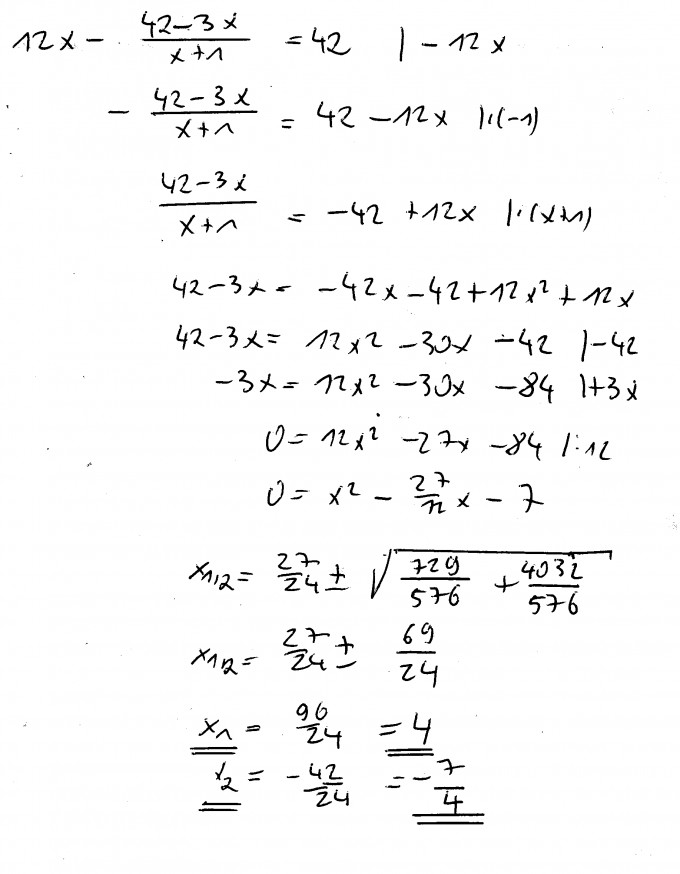 12x - (42-3x)/(x+1) = 42 | - 12x
- (42-3x)/(x+1) = 42 - 12x |·(-1)
(42-3x)/(x+1) = -42 + 12x |·(x+1)
42-3x = -42x - 42 + 12x² + 12x
42-3x = 12x² - 30x - 42 |-42
-3x = 12x² - 30x - 84 |+3x
0 = 12x² - 27x - 84 |:12
0 = x² - 27/12 x - 7
x1,2 = 27/24 ± √(729/576 + 4032/576)
x1,2 = 27/24 ± 69/24
x1 = 96/24 = 4
x2 = -42/24 = -7/4